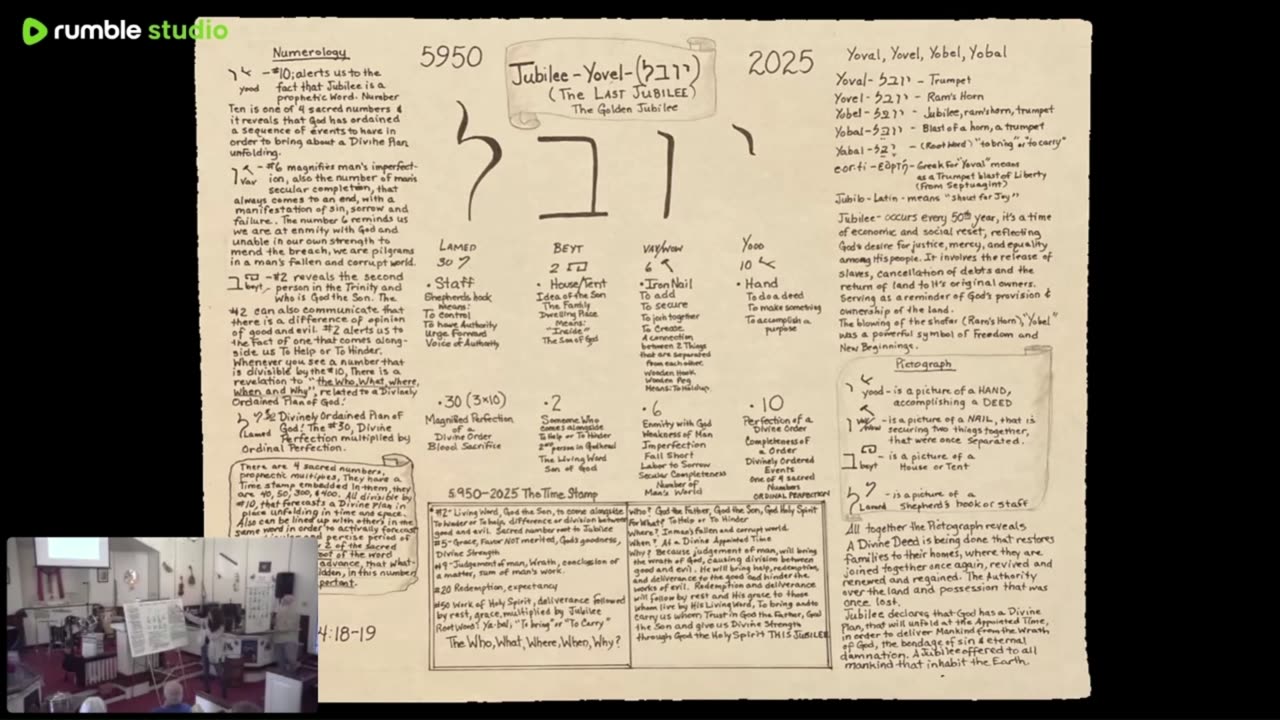 rumble studio
Numerology
yood – #10; alerts us to the
fact that Jubilee is a
prophetic word. Number
Ten is one of 4 sacred numbers &
it reveals that God has ordained
a sequence of events to have in
order to bring about a Divine Plan
unfolding.
Vav – #6 magnifies man's imperfect-
ion, also the number of man's
secular completion, that
always comes to an end, with a
manifestation of sin, sorrow and
failure. The number 6 reminds us
we are at enmity with God and
unable in our own strength to
mend the breach, we are pilgrims
in a man's fallen and corrupt world.
beyt – #2 reveals the second
person in the Trinity and
Who is God the Son. The
#2 can also communicate that
there is a difference of opinion
of good and evil. #2 alerts us to
the fact of one that comes along-
side us To Help or To Hinder.
Whenever you see a number that
is divisible by the #10, There is a
revelation to "the Who, What, Where,
When and Why", related to a Divinely
Ordained Plan of God!
Lamed Divinely Ordained Plan of
God! The #30, Divine
Perfection multiplied by
Ordinal Perfection.
There are 4 sacred numbers,
prophetic multiples, They have a
Time stamp embedded in them, they
are 40, 50, 300, & 400. All divisible by
#10, that forecasts a Divine Plan in
place unfolding in time and space.
Also can be lined up with others in the
same word in order to activally forecast
percise period of
2 of the sacred
root of the word
advance, that what-
idden, in this number
portant.
4:18-19
5950
Jubilee – Yovel – (יובל)
(The LAST JUBILEE)
The Golden Jubilee
2025
יובל
LAMED
30
• Staff
Shepherds hook
Means:
To control
To have Authority
Urge Forward
Voice of Authority
BEYT
2
• House/Tent
Idea of the Son
The Family
Dwelling Place
Means:
"Inside"
The Son of God
VAV/WOW
6
• Iron Nail
To add
To secure
To join together
To Create
A connection
between 2 Things
that are separated
from each other.
Wooden Hook
Wooden Peg
Means: To Hold up
YOOD
10
• Hand
To do a deed
To make something
To accomplish a
purpose
• 30 (3×10)
Magnified Perfection
of a
Divine Order
Blood Sacrifice
• 2
Someone Who
comes alongside
To Help or To Hinder
2nd person in Godhead
The Living Word
Son of God
• 6
Enmity with God
Weakness of Man
Imperfection
Fall Short
Labor to Sorrow
Secular Completeness
Number of
Man's World
• 10
Perfection of a
Divine Order
Completeness of
a Order
Divinely Ordered
Events
One of 4 sacred
Numbers
ORDINAL PERFECTION
5950–2025 The Time Stamp
#2" Living Word, God the Son, to come alongside
To hinder or To help, difference or division between
good and evil. Sacred number root to Jubilee
#5 - Grace, Favor NOT merited, God's goodness,
Divine Strength
#9 - Judgement of man, Wrath, conclusion of
a matter, sum of man's work.
#20 Redemption, expectancy
#50 Work of Holy Spirit, deliverance followed
by rest, grace, multiplied by Jubilee
Root Word! Ya-bal; "To bring" or "To Carry"
The Who, What, Where, When, Why?
Who? God the Father, God the Son, God Holy Spirit
For What? To Help or To Hinder
Where? In man's fallen and corrupt world.
When? At a Divine Appointed Time
Why? Because judgement of man, will bring
the wrath of God, causing division between
good and evil. He will bring help, redemption,
and deliverance to the good and hinder the
works of evil. Redemption and deliverance
will follow by rest and His grace to those
whom live by His Living Word, To bring and to
carry us whom Trust in God the Father, God
the Son and give us Divine Strength
through God the Holy Spirit THIS JUBILEE
Yoval, Yovel, Yobel, Yobal
Yoval – יובל – Trumpet
Yovel – יובל – Ram's Horn
Yobel – יובל – Jubilee, ram's horn, trumpet
Yobal – יובל – Blast of a horn, a trumpet
Yabal – יבל – (Root Word) "to bring" or "to carry"
eorti – εορτή – Greek for "Yoval" means
as a Trumpet blast of Liberty
(From Septuagint)
Jubilo – Latin – means "shout for Joy"
Jubilee – occurs every 50th year, it's a time
of economic and social reset, reflecting
God's desire for justice, mercy, and equality
among His people. It involves the release of
slaves, cancellation of debts and the
return of land to it's original owners.
Serving as a reminder of God's provision &
ownership of the land.
The blowing of the shofar (Ram's Horn), "Yobel"
was a powerful symbol of Freedom and
New Beginnings.
Pictograph
yood – is a picture of a HAND,
accomplishing a DEED
Vav/Wow – is a picture of a NAIL, that is
securing two things together,
that were once separated.
beyt – is a picture of a
House or Tent
Lamed – is a picture of a
shepherd's hook or staff
All together the Pictograph reveals
A Divine Deed is being done that restores
families to their homes, where they are
joined together once again, revived and
renewed and regained. The Authority
over the land and possession that was
once lost.
Jubilee declares that God has a Divine
Plan, that will unfold at the Appointed Time,
in order to deliver Mankind from the Wrath
of God, the bondage of sin & eternal
damnation. A Jubilee offered to all
mankind that inhabit the Earth.